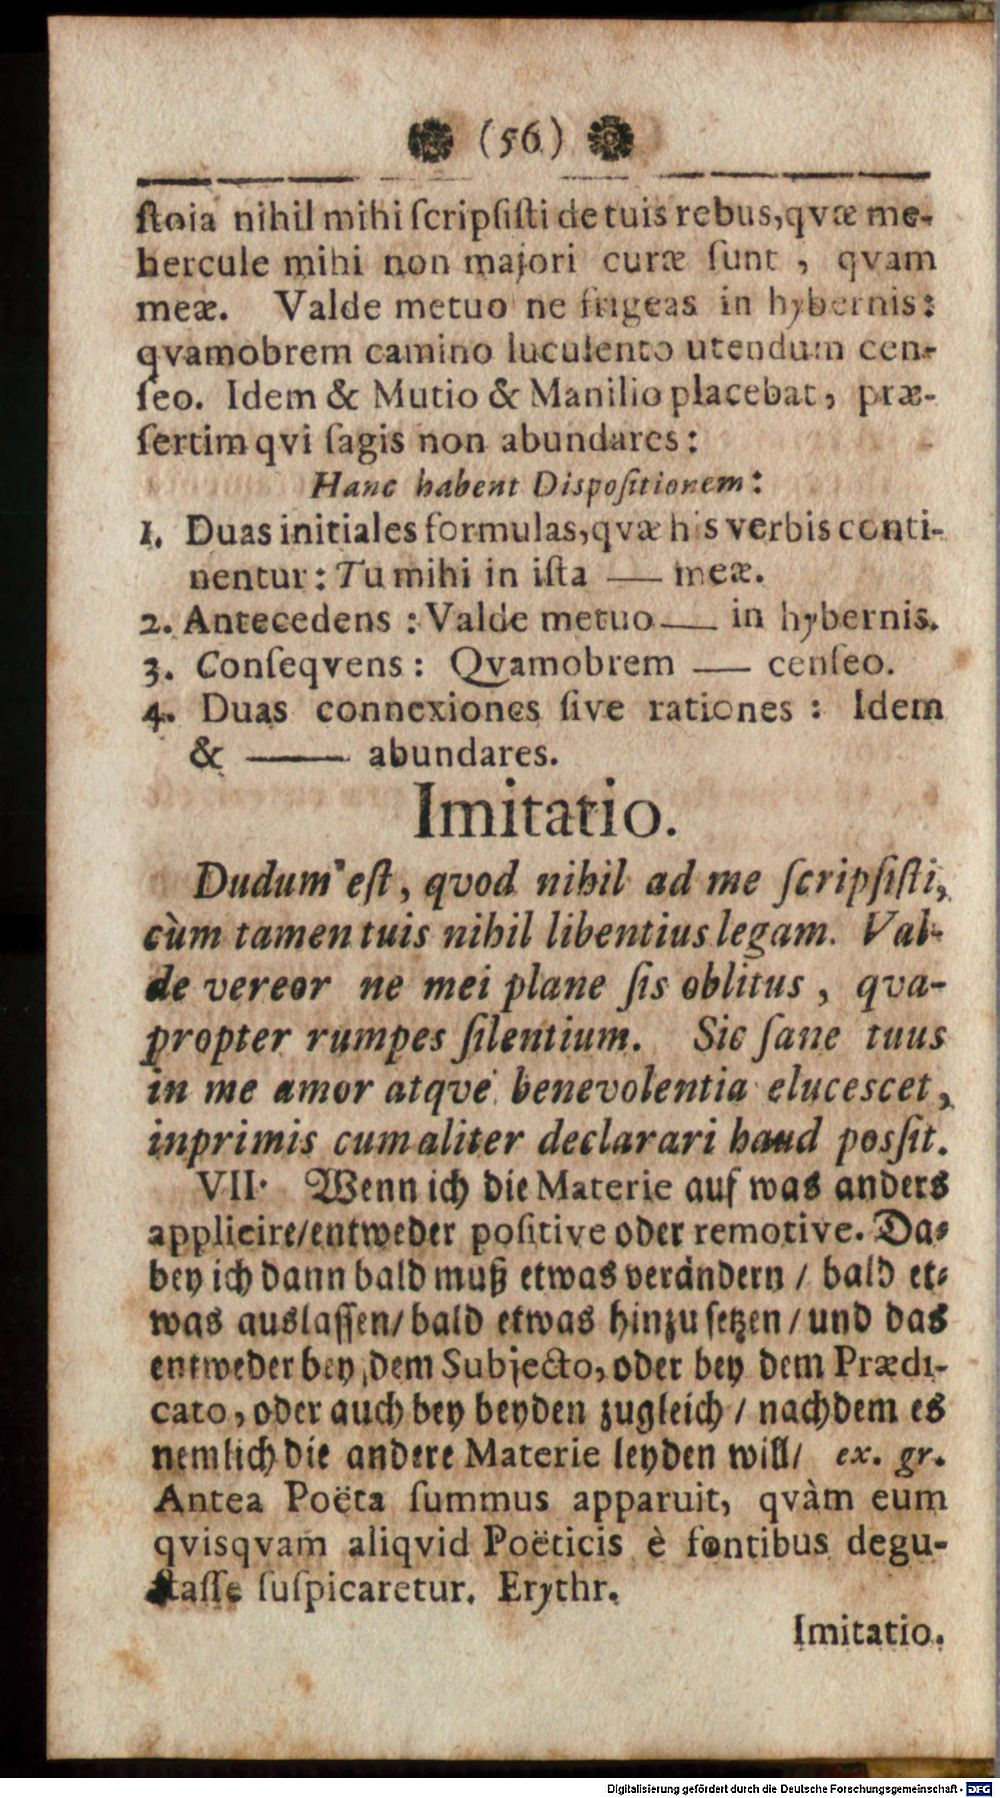 (56)
ſtoia nihil mihi ſcripſiſti de tuis rebus, qvæ me-
hercule mihi non majori curæ ſunt , qvam
meæ. Valde metuo ne frigeas in hybernis:
qvamobrem camino luculento utendum cen-
ſeo. Idem & Mutio & Manilio placebat, præ-
ſertim qvi ſagis non abundares:
Hanc habent Diſpoſitionem:
1. Duas initiales formulas, qvæ his verbis conti-
nentur: Tu mihi in iſta —— meæ.
2. Antecedens : Valde metuo —— in hybernis.
3. Conſeqvens : Qvamobrem —— cenſeo.
4. Duas connexiones ſive rationes : Idem
& —— abundares.
Imitatio.
Dudum eſt, qvod nihil ad me ſcripſiſti,
cùm tamen tuis nihil libentius legam. Val-
de vereor ne mei plane ſis oblitus , qva-
propter rumpes ſilentium. Sic ſane tuus
in me amor atqve benevolentia eluceſcet,
inprimis cum aliter declarari haud posſit.
VII. Wenn ich die Materie auf was anders
applicire/entweder poſitive oder remotive. Da-
bey ich dann bald muß etwas verändern / bald et-
was auslaſſen/ bald etwas hinzu ſetzen / und das
entweder bey dem Subjecto, oder bey dem Prædi-
cato, oder auch bey beyden zugleich / nachdem es
nemlich die andere Materie leyden will/ ex. gr.
Antea Poëta ſummus apparuit, qvàm eum
qvisqvam aliqvid Poëticis è fontibus degu-
ſtaſſe ſuſpicaretur. Erythr.
Imitatio.
Digitalisierung gefördert durch die Deutsche Forschungsgemeinschaft - DFG